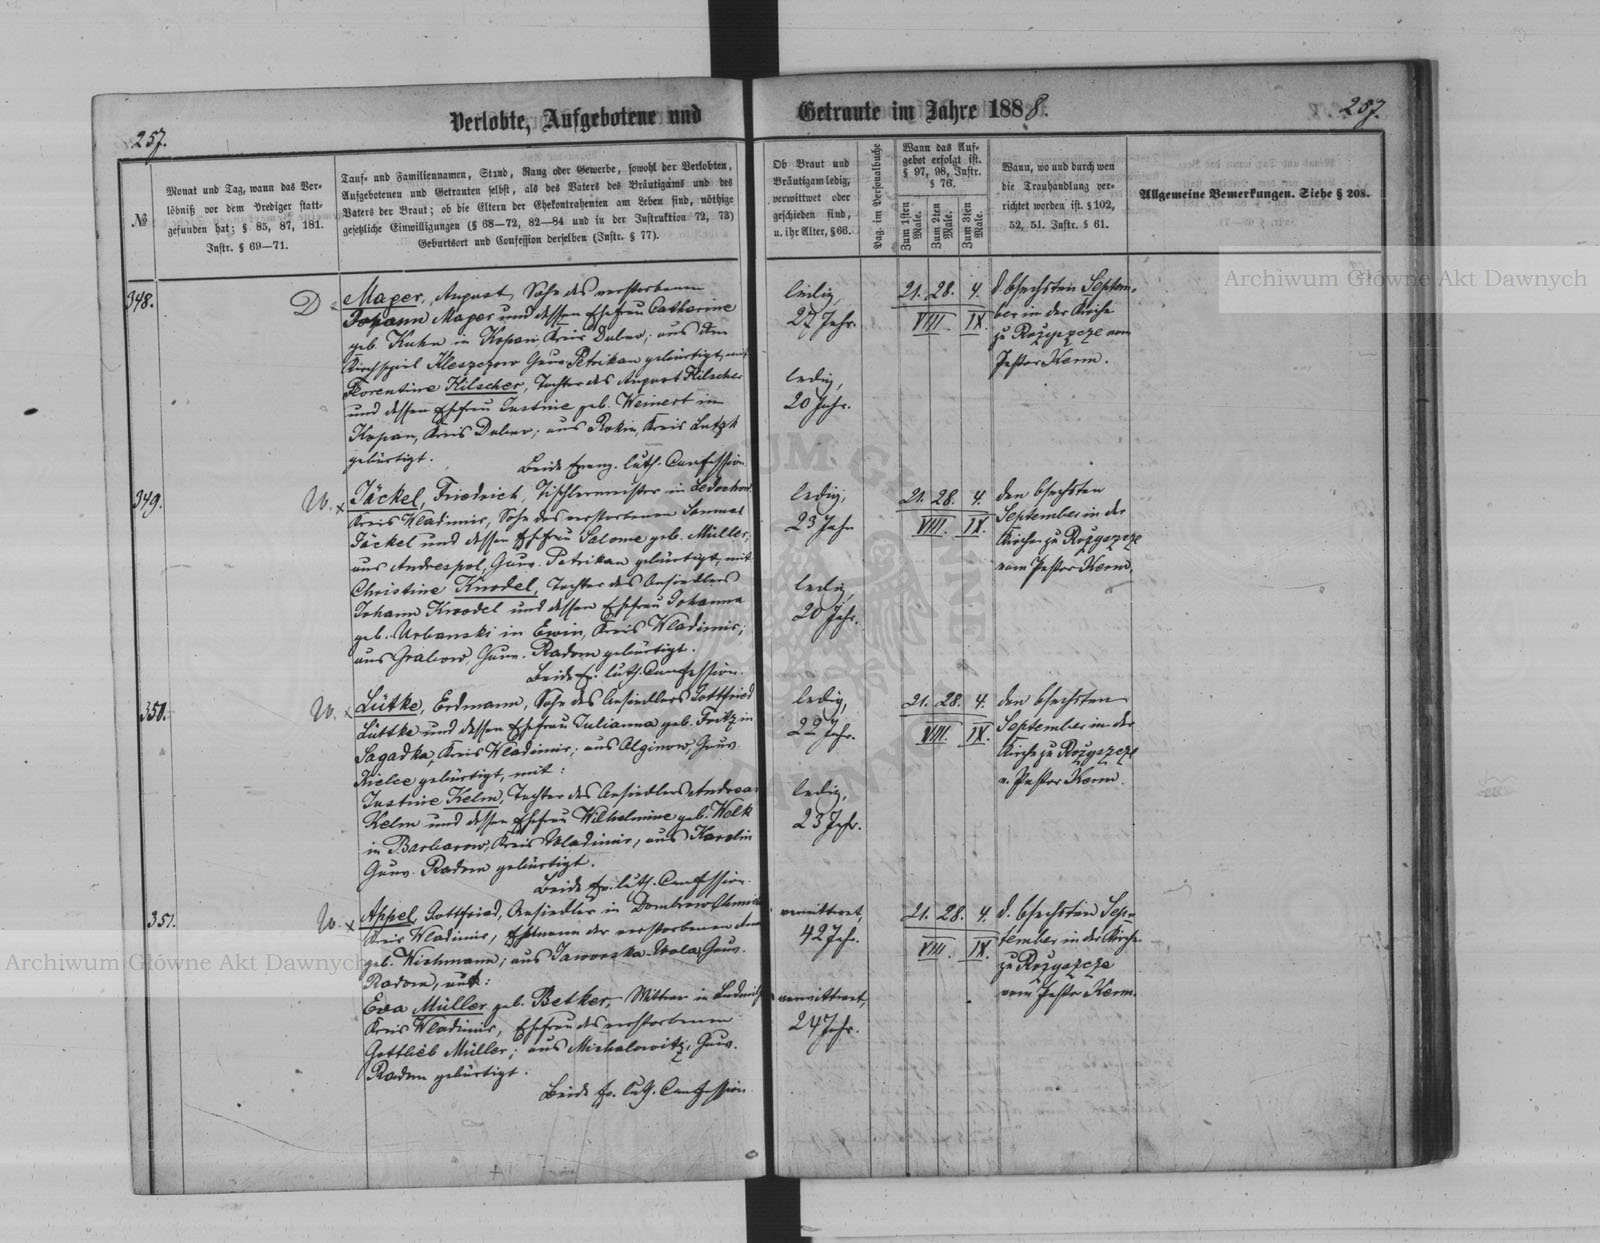 257.
Verlobte, Aufgebotene und
Getraute im Jahre 1888.
257.
№
Monat und Tag, wann das Ver-
löbniß vor dem Prediger statt-
gefunden hat; § 85, 87, 181.
Instr. § 69—71.
Tauf- und Familiennamen, Stand, Rang oder Gewerbe, sowohl der Verlobten,
Aufgebotenen und Getrauten selbst, als des Vaters des Bräutigams und des
Vaters der Braut; ob die Eltern der Ehekontrahenten am Leben sind, nöthige
gesetzliche Einwilligungen (§ 68—72, 82—84 und in der Instruktion 72, 73)
Geburtsort und Confession derselben (Instr. § 77).
Ob Braut und
Bräutigam ledig,
verwittwet oder
geschieden sind,
u. ihr Alter, § 66.
Pag. im Personalbuche
Wann das Auf-
gebot erfolgt ist.
§ 97, 98, Instr.
§ 76.
Zum 1sten
Male.
Zum 2ten
Male.
Zum 3ten
Male.
Wann, wo und durch wen
die Trauhandlung ver-
richtet worden ist. § 102,
52, 51. Instr. § 61.
Allgemeine Bemerkungen. Siehe § 208.
348.
D
Mager, August, Sohn des verstorbenen
Johann Mager und dessen Ehefrau Catharine
geb. Kuhn in Kopan, Kreis Dubno; aus dem
Kirchspiel Kleszczow Gouv. Petrikau gebürtigt, mit
Florentine Hilscher, Tochter des August Hilscher
und dessen Ehefrau Justine geb. Weinert in
Kopan, Kreis Dubno; aus Rokin, Kreis Lutzk
gebürtigt.
Beide Evang. luth. Confession.
ledig,
27 Jahr.
ledig,
20 Jahr.
21. 28. 4.
VIII. IX.
d. 6sechsten Septem-
ber in der Kirche
zu Rożyszcze vom
Pastor Kerm.
349.
W. x
Jäckel, Friedrich, Tischlermeister in
Kreis Wladimir, Sohn des verstorbenen Samuel
Jäckel und dessen Ehefrau Salome geb. Müller,
aus Andrespol, Gouv. Petrikau gebürtigt, mit
Christine Knodel, Tochter des Ansiedlers
Johann Knodel und dessen Ehefrau Johanna
geb. Urbanski in Ewin, Kreis Wladimir;
aus Grabow, Gouv. Radom gebürtigt.
Beide Ev. luth. Confession.
ledig,
23 Jahr
ledig,
20 Jahr.
21. 28. 4.
VIII. IX.
den 6sechsten
September in der
Kirche zu Rożyszcze
vom Pastor Kerm.
350.
W. x
Lütke, Erdmann, Sohn des Ansiedlers Gottfried
Lüttke und dessen Ehefrau Julianna geb. Fritz in
Sagadka, Kreis Wladimir; aus Olginow, Gouv.
Kielce gebürtigt, mit:
Justine Kelm, Tochter des Ansiedlers Andreas
Kelm und dessen Ehefrau Wilhelmine geb. Welk
in Barbarow, Kreis Wladimir, aus Karolin
Gouv. Radom gebürtigt.
Beide Ev. luth. Confession.
ledig,
22 Jahr.
ledig,
23 Jahr.
21. 28. 4.
VIII. IX.
den 6sechsten
September in der
Kirche zu Rożyszcze
v. Pastor Kerm.
351.
W. x
Appel, Gottfried, Ansiedler in
Kreis Wladimir, Ehemann der verstorbenen
geb. Wichmann; aus Jaworska-Wola, Gouv.
Radom, mit:
Eva Müller geb. Betker, Wittwe in
Kreis Wladimir, Ehefrau des verstorbenen
Gottlieb Müller; aus Michalowitz, Gouv.
Radom gebürtigt.
Beide Ev. luth. Confession.
verwittwet,
42 Jahr.
verwittwet,
24 Jahr.
21. 28. 4.
VIII. IX.
d. 6sechsten Sep-
tember in der Kirche
zu Rożyszcze
vom Pastor Kerm.
Archiwum Główne Akt Dawnych
Archiwum Główne Akt Dawnych